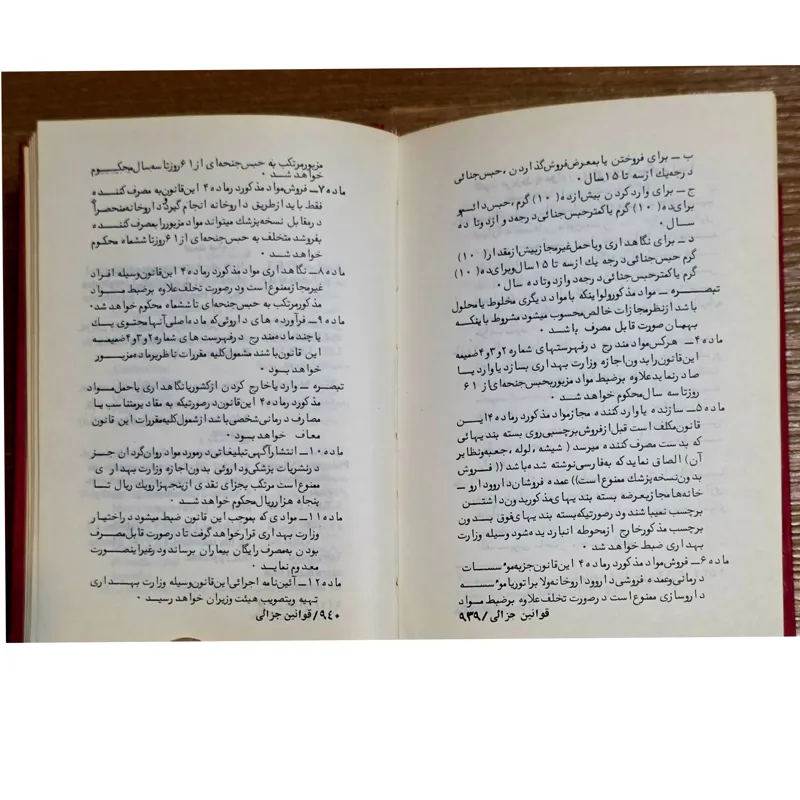 ب ــ برای فروختن یا بمعرض فروش گذاردن ، حبس جنائی
درجه یک از سه تا ۱۵ سال ۰
ج ــ برای وارد کردن بیش از ده ( ۱۰ ) گرم ، حبس دائم
برای ده ( ۱۰ ) گرم یا کمتر حبس جنائی درجه دو از دو تا ده
سال ۰
د ــ برای نگاهداری و یا حمل غیر مجاز بیش از مقدار ( ۱۰ )
گرم حبس جنائی درجه یک از سه تا ۱۵ سال و برای ده ( ۱۰ )
گرم یا کمتر حبس جنائی درجه دو از دو تا ده سال ۰
تبصره ــ مواد مذکور ولو اینکه با مواد دیگری مخلوط یا محلول
باشد از نظر مجازات خالص محسوب میشود مشروط باینکه
بهمان صورت قابل مصرف باشد ۰
ماده ۴ ــ هر کس مواد مندرج در فهرستهای شماره ۲ و ۳ و ۴ ضمیمه
این قانون را بدون اجازه وزارت بهداری بسازد یا وارد یا
صادر نماید علاوه بر ضبط مواد مزبور بحبس جنحه‌ای از ۶۱
روز تا سه سال محکوم خواهد شد ۰
ماده ۵ ــ سازنده یا وارد کننده مجاز مواد مذکور در ماده ۴ این
قانون مکلف است قبل از فروش برچسبی روی بسته بندیهائی
که بدست مصرف کننده میرسد ( شیشه ، لوله ، جعبه و نظایر
آن ) الصاق نماید که به فارسی نوشته شده باشد (( فروش
بدون نسخه پزشک ممنوع است )) عمده فروشان دارو و دارو ــ
خانه‌ها مجاز بعرضه بسته بندیهای مذکور بدون داشتن
برچسب نمیباشند و در صورتیکه بسته بندیهای فوق بدون
برچسب مذکور خارج از محوطه انبار دیده شود وسیله وزارت
بهداری ضبط خواهد شد ۰
ماده ۶ ــ فروش مواد مذکور در ماده ۴ این قانون جز به موسسات
درمانی و عمده فروشی دارو و داروخانه و لابراتوار یا موسسه
داروسازی ممنوع است در صورت تخلف علاوه بر ضبط مواد
قوانین جزائی / ۹۳۹
مزبور مرتکب به حبس جنحه‌ای از ۶۱ روز تا سه سال محکوم
خواهد شد ۰
ماده ۷ ــ فروش مواد مذکور در ماده ۴ این قانون به مصرف کننده
فقط باید از طریق داروخانه انجام گیرد و داروخانه منحصراً
در مقابل نسخه پزشک میتواند مواد مزبور را بمصرف کننده
بفروشد متخلف به حبس جنحه‌ای از ۶۱ روز تا ششماه محکوم
خواهد شد ۰
ماده ۸ ــ نگاهداری مواد مذکور در ماده ۴ این قانون وسیله افراد
غیر مجاز ممنوع است و در صورت تخلف علاوه بر ضبط مواد
مذکور مرتکب به حبس جنحه‌ای تا ششماه محکوم خواهد شد ۰
ماده ۹ ــ فرآورده های داروئی که ماده اصلی آنها محتوی یک
یا چند ماده مندرج در فهرست های شماره ۲ و ۳ و ۴ ضمیمه
این قانون باشند مشمول کلیه مقررات ناظر بر ماده مزبور
خواهد بود ۰
تبصره ــ وارد یا خارج کردن از کشور یا نگاهداری یا حمل مواد
مذکور در ماده ۴ این قانون در صورتیکه به مقادیر متناسب با
مصارف درمانی شخصی باشد از شمول کلیه مقررات این قانون
معاف خواهد بود ۰
ماده ۱۰ ــ انتشار آگهی تبلیغاتی در مورد مواد روان گردان جز
در نشریات پزشکی و داروئی بدون اجازه وزارت بهداری
ممنوع است مرتکب بجزای نقدی از پنجهزار و یک ریال تا
پنجاه هزار ریال محکوم خواهد شد ۰
ماده ۱۱ ــ موادی که بموجب این قانون ضبط میشود در اختیار
وزارت بهداری قرار خواهد گرفت تا در صورت قابل مصرف
بودن به مصرف رایگان بیماران برساند و در غیر اینصورت
معدوم نماید ۰
ماده ۱۲ ــ آئین نامه اجرائی این قانون وسیله وزارت بهداری
تهیه و بتصویب هیئت وزیران خواهد رسید ۰
۹۴۰ / قوانین جزائی